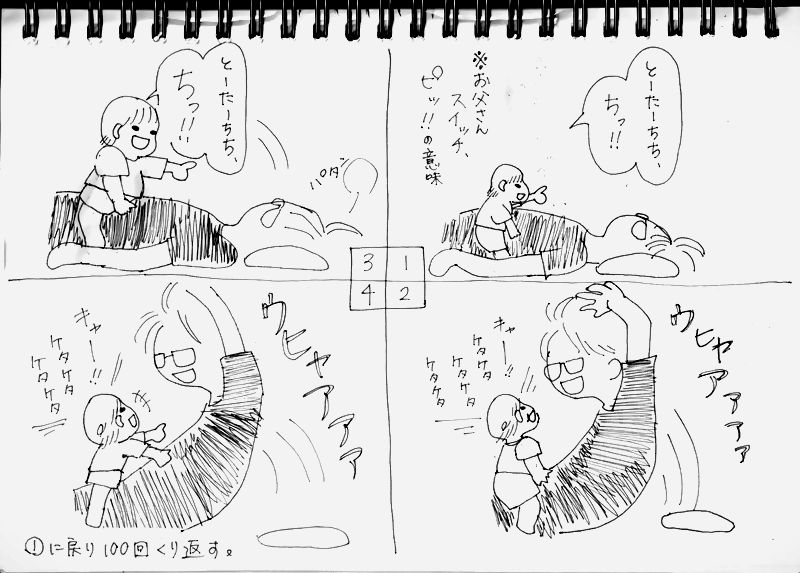 とーたーちち、
ちっ!!
※お父さん
スイッチ、
ピッ!!の意味
1
ウヒャアアアア
キャー!!
ケタケタ
ケタケタ
ケタケタ
2
とーたーちち、
ちっ!!!
パタン
3
ウヒャアアア
キャー!!
ケタケタ
ケタケタ
ケタケタ
4
①に戻り100回くり返す。